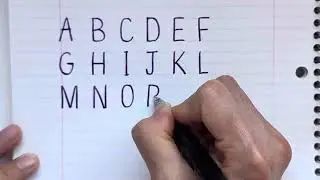 A B C D E F
G H I J K L
M N O P